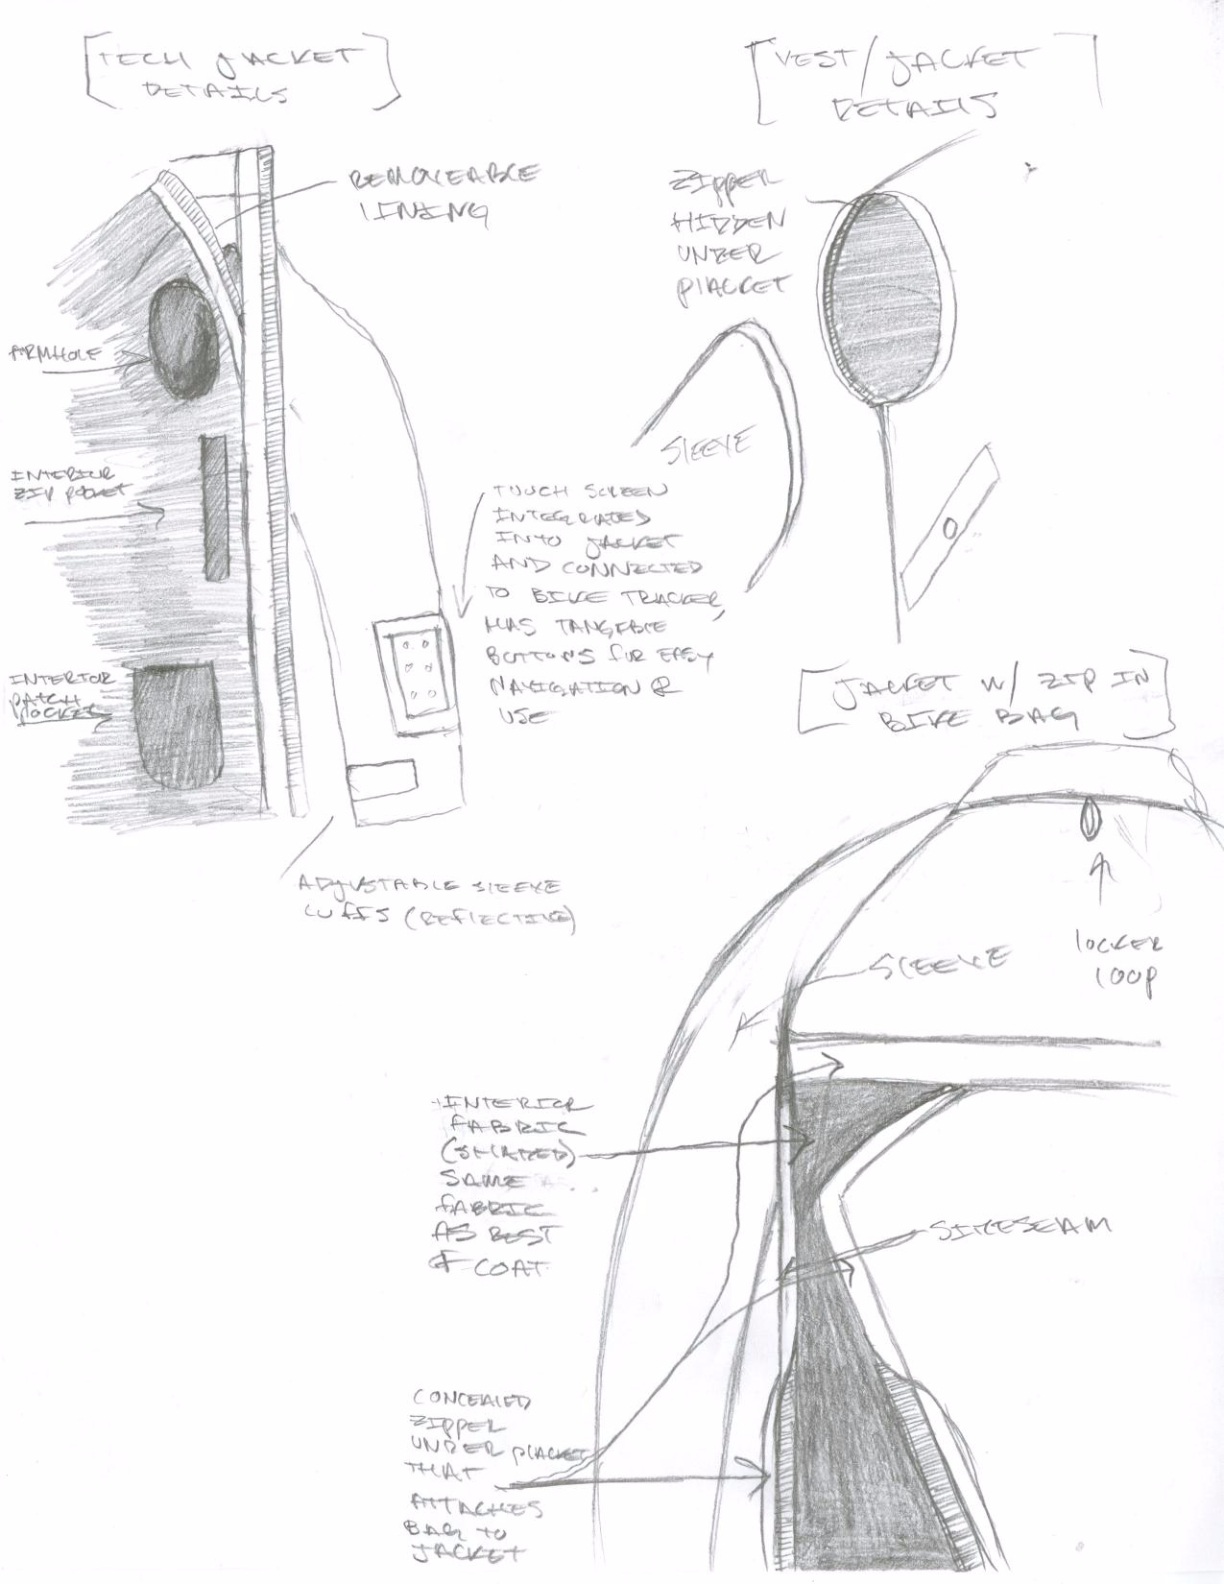 [TECH JACKET
DETAILS]
REMOVEABLE
LINING
ARMHOLE
INTERIOR
ZIP POCKET
INTERIOR
PATCH
POCKET
TOUCH SCREEN
INTEGRATED
INTO JACKET
AND CONNECTED
TO BIKE TRACKER,
HAS TANGIBLE
BUTTONS FOR EASY
NAVIGATION &
USE
ADJUSTABLE SLEEVE
CUFFS (REFLECTIVE)
[VEST/JACKET
DETAILS]
ZIPPER
HIDDEN
UNDER
PLACKET
SLEEVE
[JACKET W/ ZIP IN
BIKE BAG]
LOCKER
LOOP
SLEEVE
INTERIOR
FABRIC
(SHARED)
SAME
FABRIC
AS REST
OF COAT
SIDESEAM
CONCEALED
ZIPPER
UNDER PLACKET
THAT
ATTACHES
BAG TO
JACKET